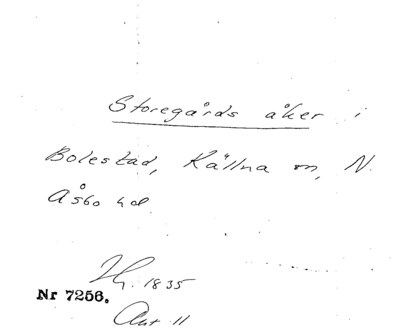 Storegårds åker i
Bolestad, Källna sn, N.
Åsbo hd.
Hz. 1835
Nr 7256.
Ant. 11